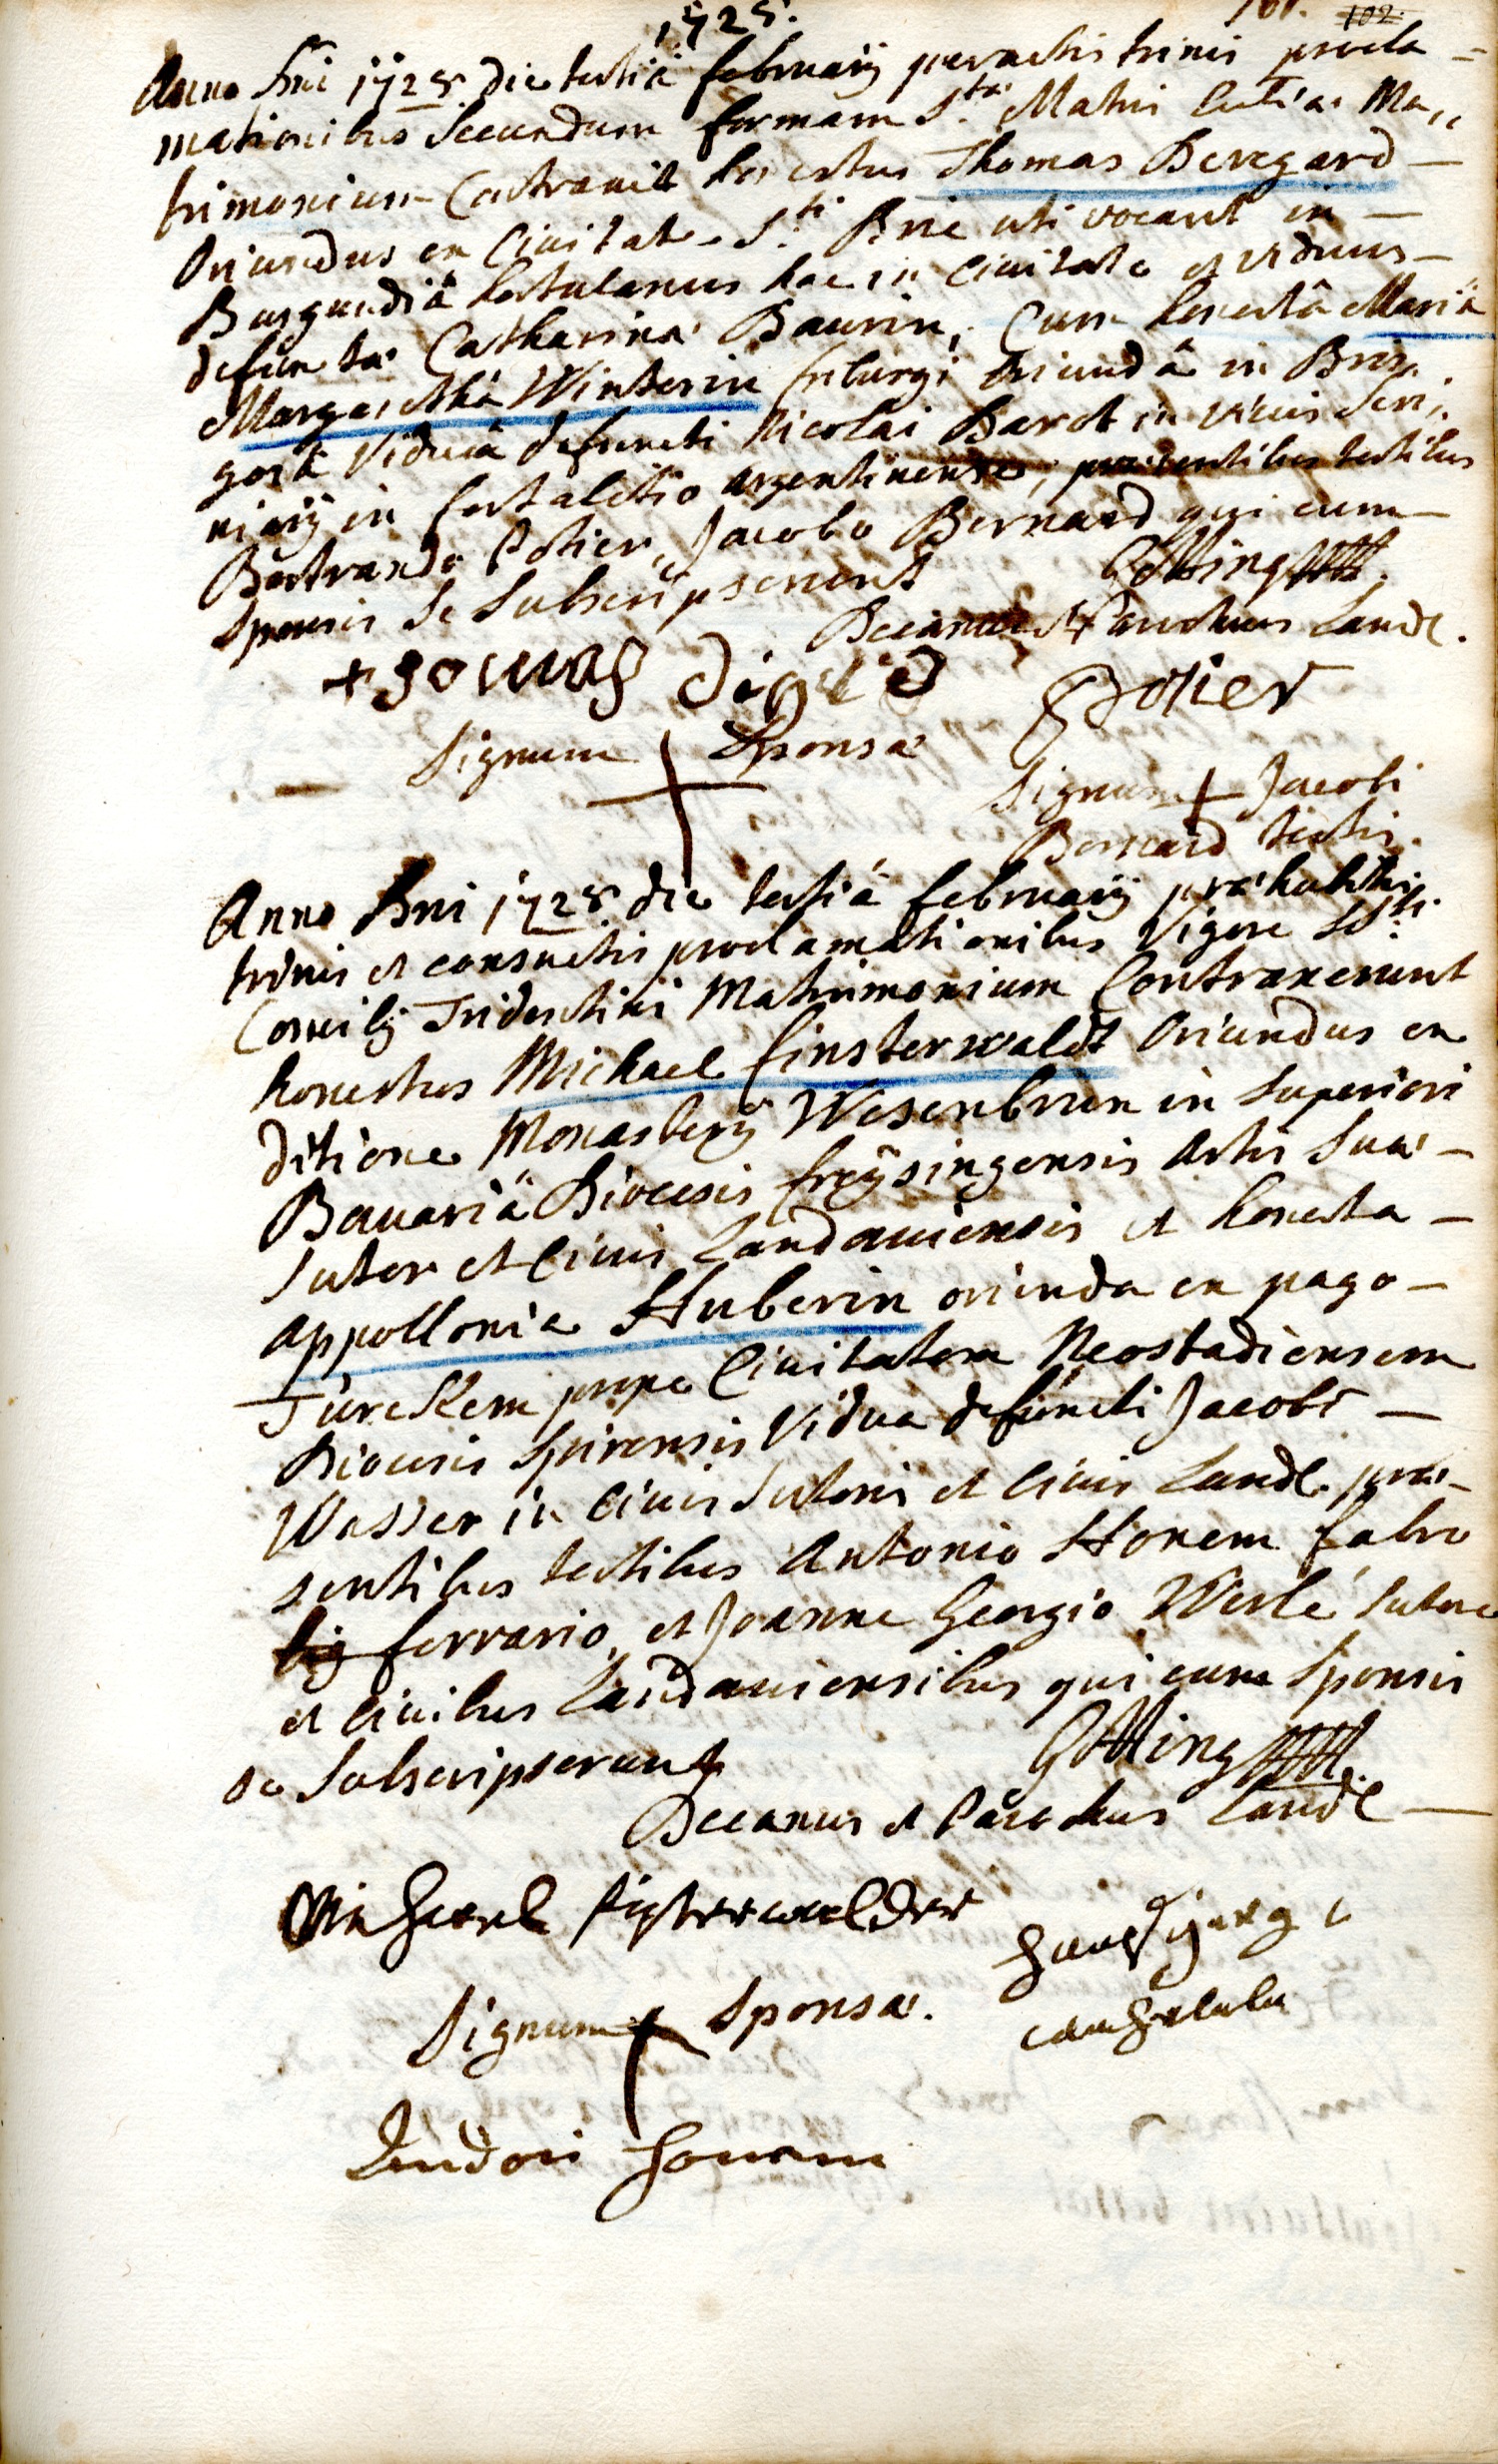 1725.
101. 102.
Anno Dni 1725 die tertiâ february peractis trinis procla-
mationibus Secundum formam S.tae Matris Eccliae Ma„
trimonium Contraxit honestus Thomas Beregard —
Oriundus ex Civitate S.ti Brie uti vocant in —
Burgundiâ hortulanus hac in Civitate et viduus —
defunctae Catharinae Baurin, Cum honestâ Mariâ
Margarethâ Winterin friburgi Oriundâ in Bris
goiâ Viduâ defuncti Nicolai Barot in vivis
niarij in fortalitio argentinensi, praesentibus testibus
Bertrando Potier, Jacobo Bernard qui cum —
Sponsis Se Subscripserunt
Götting
Decanus et Parochus Land.
+
Potier
Signum + Sponsae
Signum + Jacobi
Bernard testis.
Anno Dni 1725 die tertiâ february praehabitis
trinis et consuetis proclamationibus Vigore SSti
Concilij Tridentini Matrimonium Contraxerunt
honestus Michael finsterwaldt Oriundus ex
ditione Monasterij Wesenbrun in Superiori
Bavariâ Diocesis freÿsingensis Artis Suae —
Sutor et Civis Landauiensis et honesta —
appollonia Huberin oriunda ex pago —
Türckem prope Civitatem Neostadiensem
Diocesis Spirensis Vidua defuncti Jacobi —
Wasser in vivis Sutoris et Civis Land. prae-
sentibus testibus Antonio Honem fabro
lig ferrario, et Joanne Georgio Werlé Sutore
et Civibus Landauiensibus qui cum Sponsis
se Subscripserunt
Götting
Decanus et Parochus Land —
Michael finsterwalder
Hans
Signum + Sponsae.